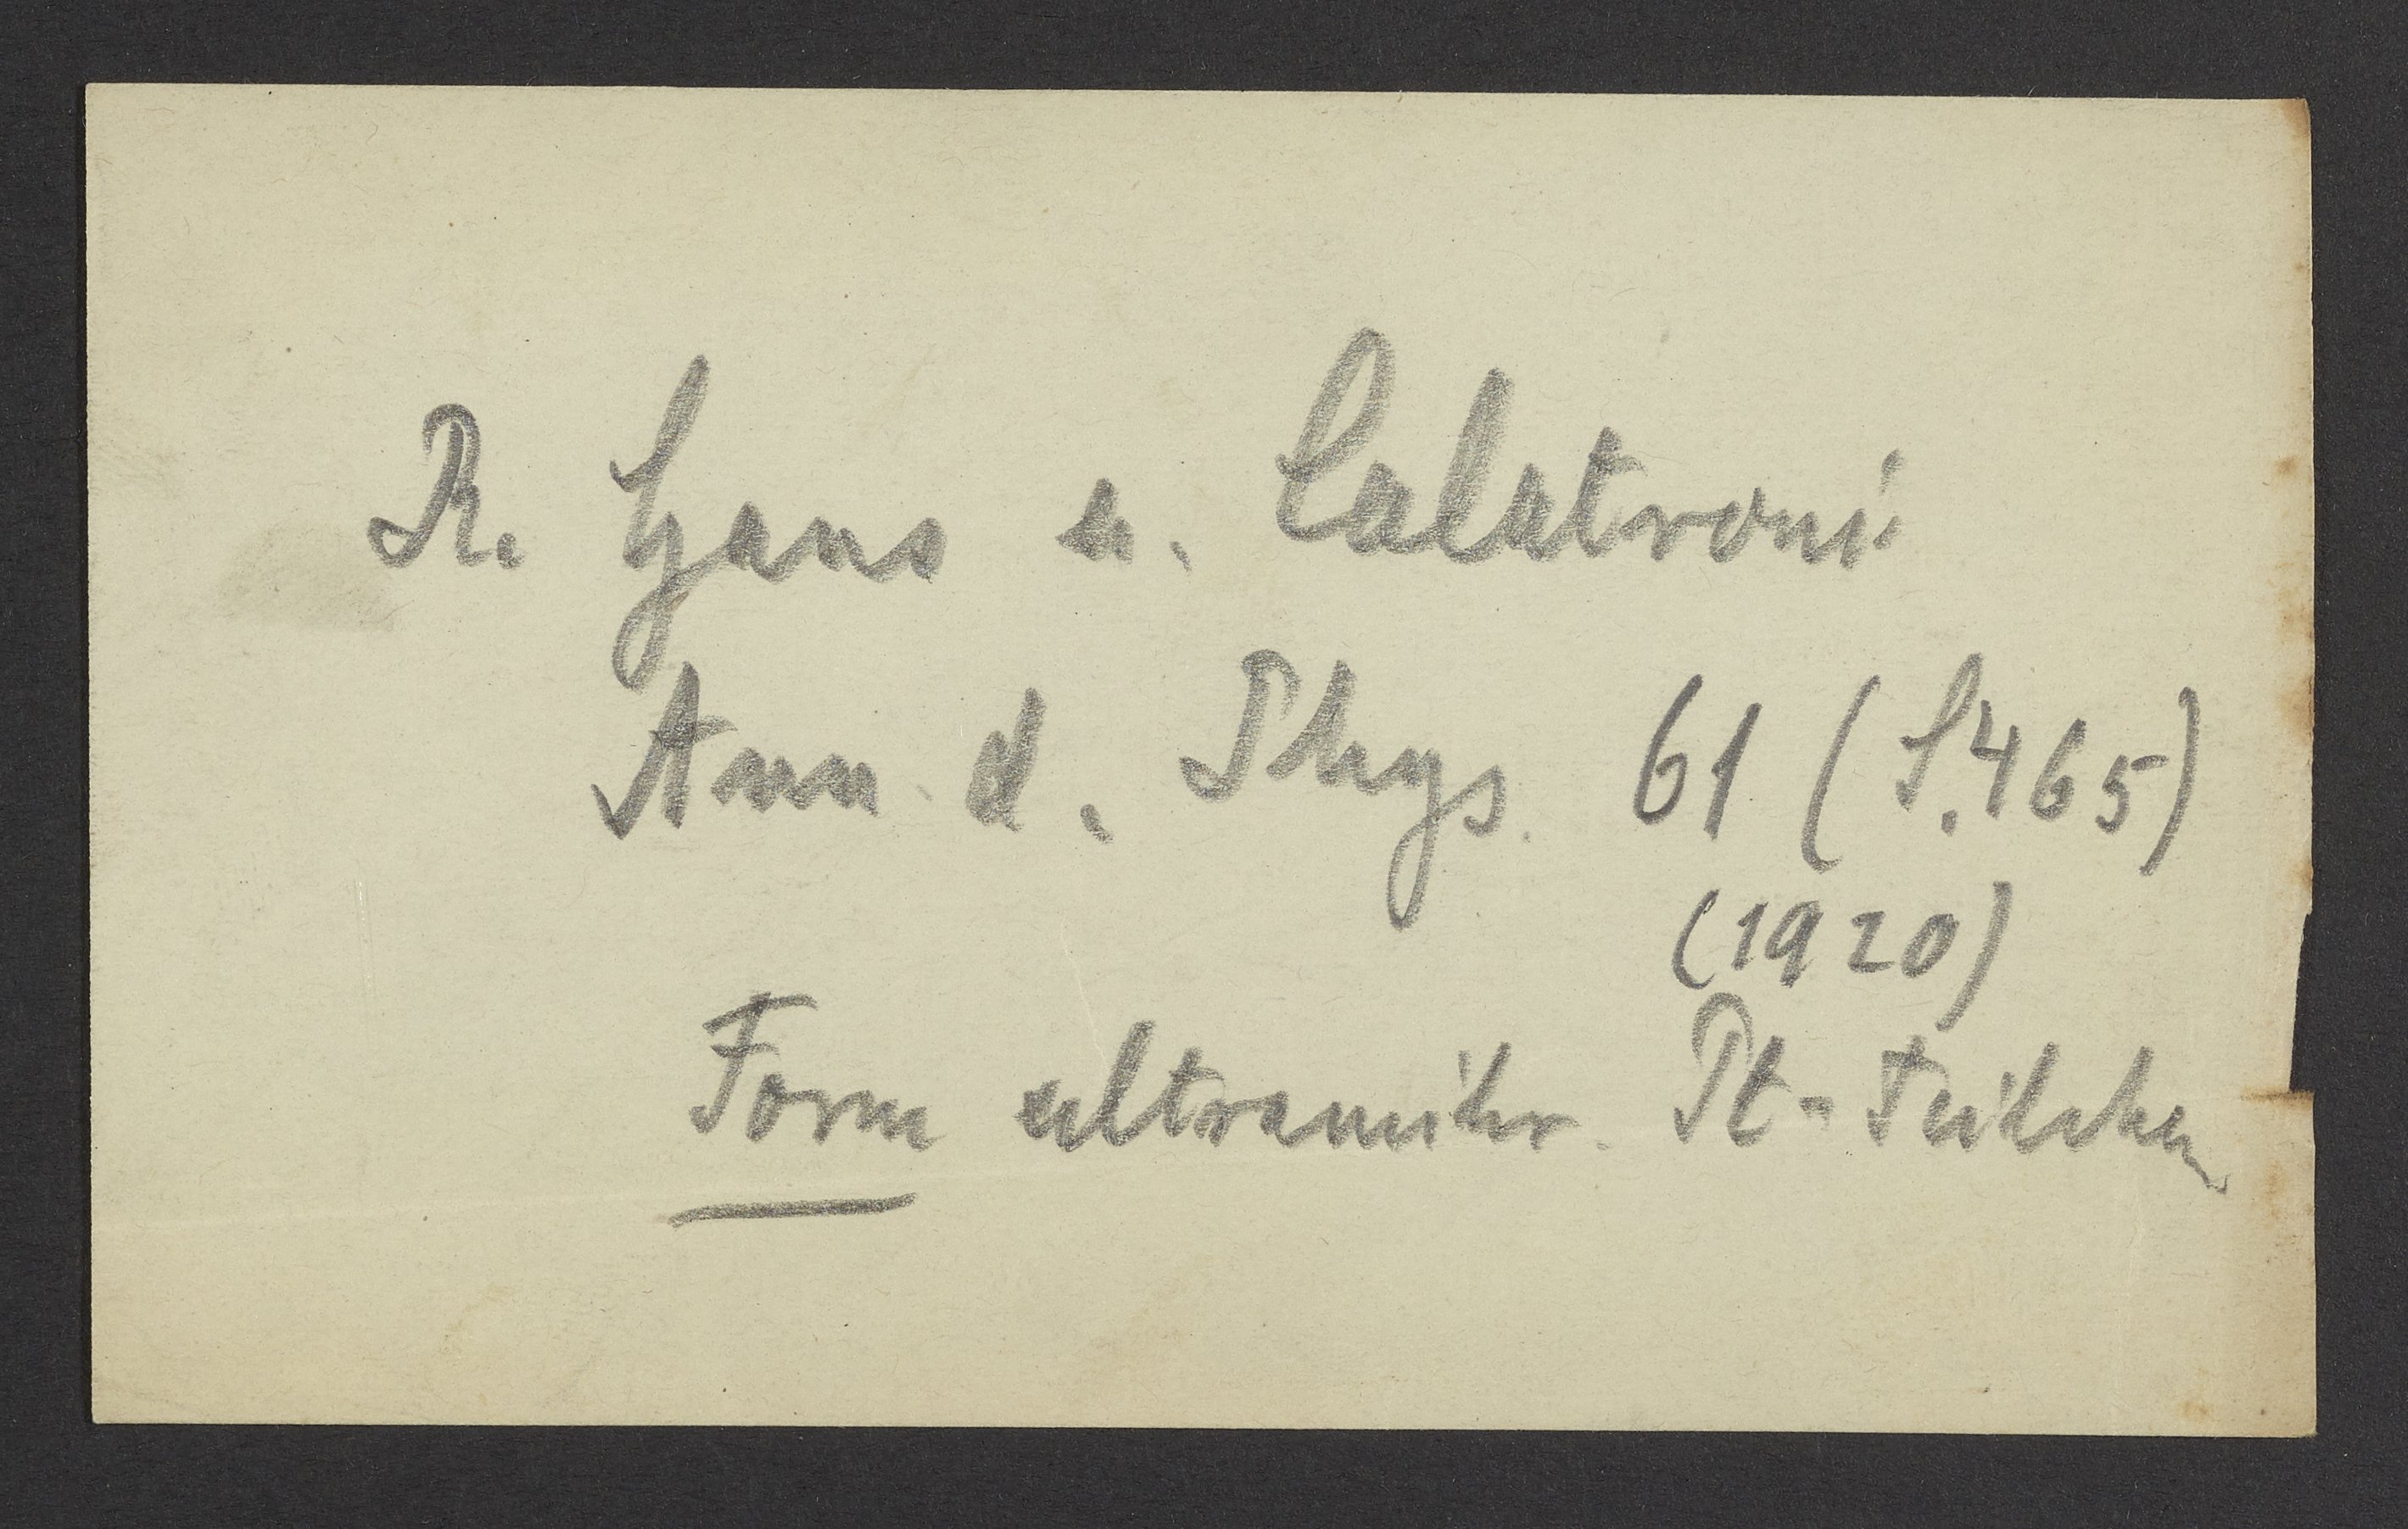 R. Gans u. Calatroni
Ann d. Phys. 61 (S. 465)
(1920)
Form ultramikr. Pt-Teilchen